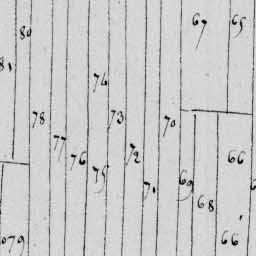 67
65
80
81
74
78
73
70
77
76
72
66
75
71
69
68
79
66